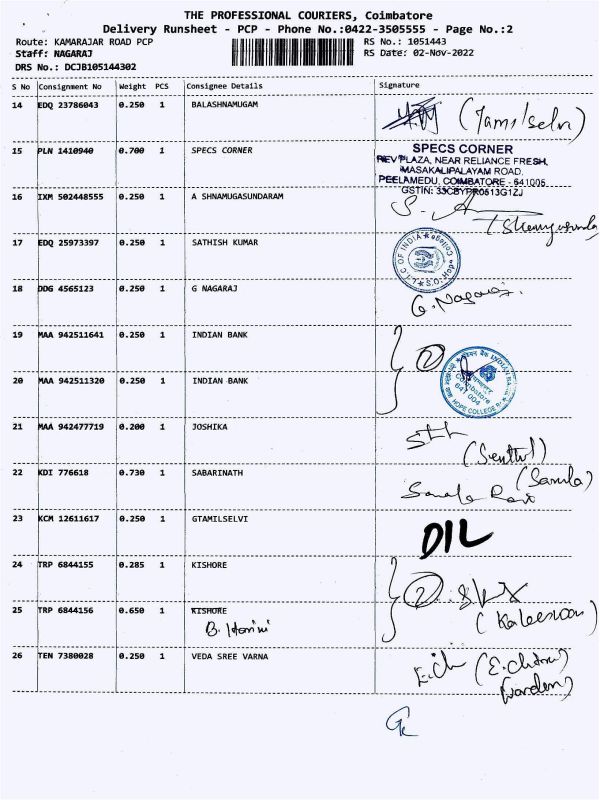 THE PROFESSIONAL COURIERS, Coimbatore
Delivery Runsheet - PCP - Phone No.:0422-3505555 - Page No.:2
Route: KAMARAJAR ROAD PCP RS No.: 1051443
Staff: NAGARAJ RS Date: 02-Nov-2022
DRS No.: DCJB105144302
S No Consignment No Weight PCS Consignee Details Signature
14 EDQ 23786043 0.250 1 BALASHNAMUGAM
(Tamilselvi)
15 PLN 1410940 0.700 1 SPECS CORNER
SPECS CORNER
REV PLAZA, NEAR RELIANCE FRESH,
MASAKALIPALAYAM ROAD,
PEELAMEDU, COIMBATORE - 641005
16 IXM 502448555 0.250 1 A SHNAMUGASUNDARAM
17 EDQ 25973397 0.250 1 SATHISH KUMAR
L.I.C OF INDIA
18 DDG 4565123 0.250 1 G NAGARAJ
G. Nagaraj.
19 MAA 942511641 0.250 1 INDIAN BANK
2
20 MAA 942511320 0.250 1 INDIAN BANK
INDIAN BANK
Coimbatore
641 004
HOPE COLLEGE
21 MAA 942477719 0.200 1 JOSHIKA
(Senthil)
22 KDI 776618 0.730 1 SABARINATH
23 KCM 12611617 0.250 1 GTAMILSELVI
DIL
24 TRP 6844155 0.285 1 KISHORE
2
25 TRP 6844156 0.650 1 KISHORE
B. Harini
26 TEN 7380028 0.250 1 VEDA SREE VARNA
(warden)